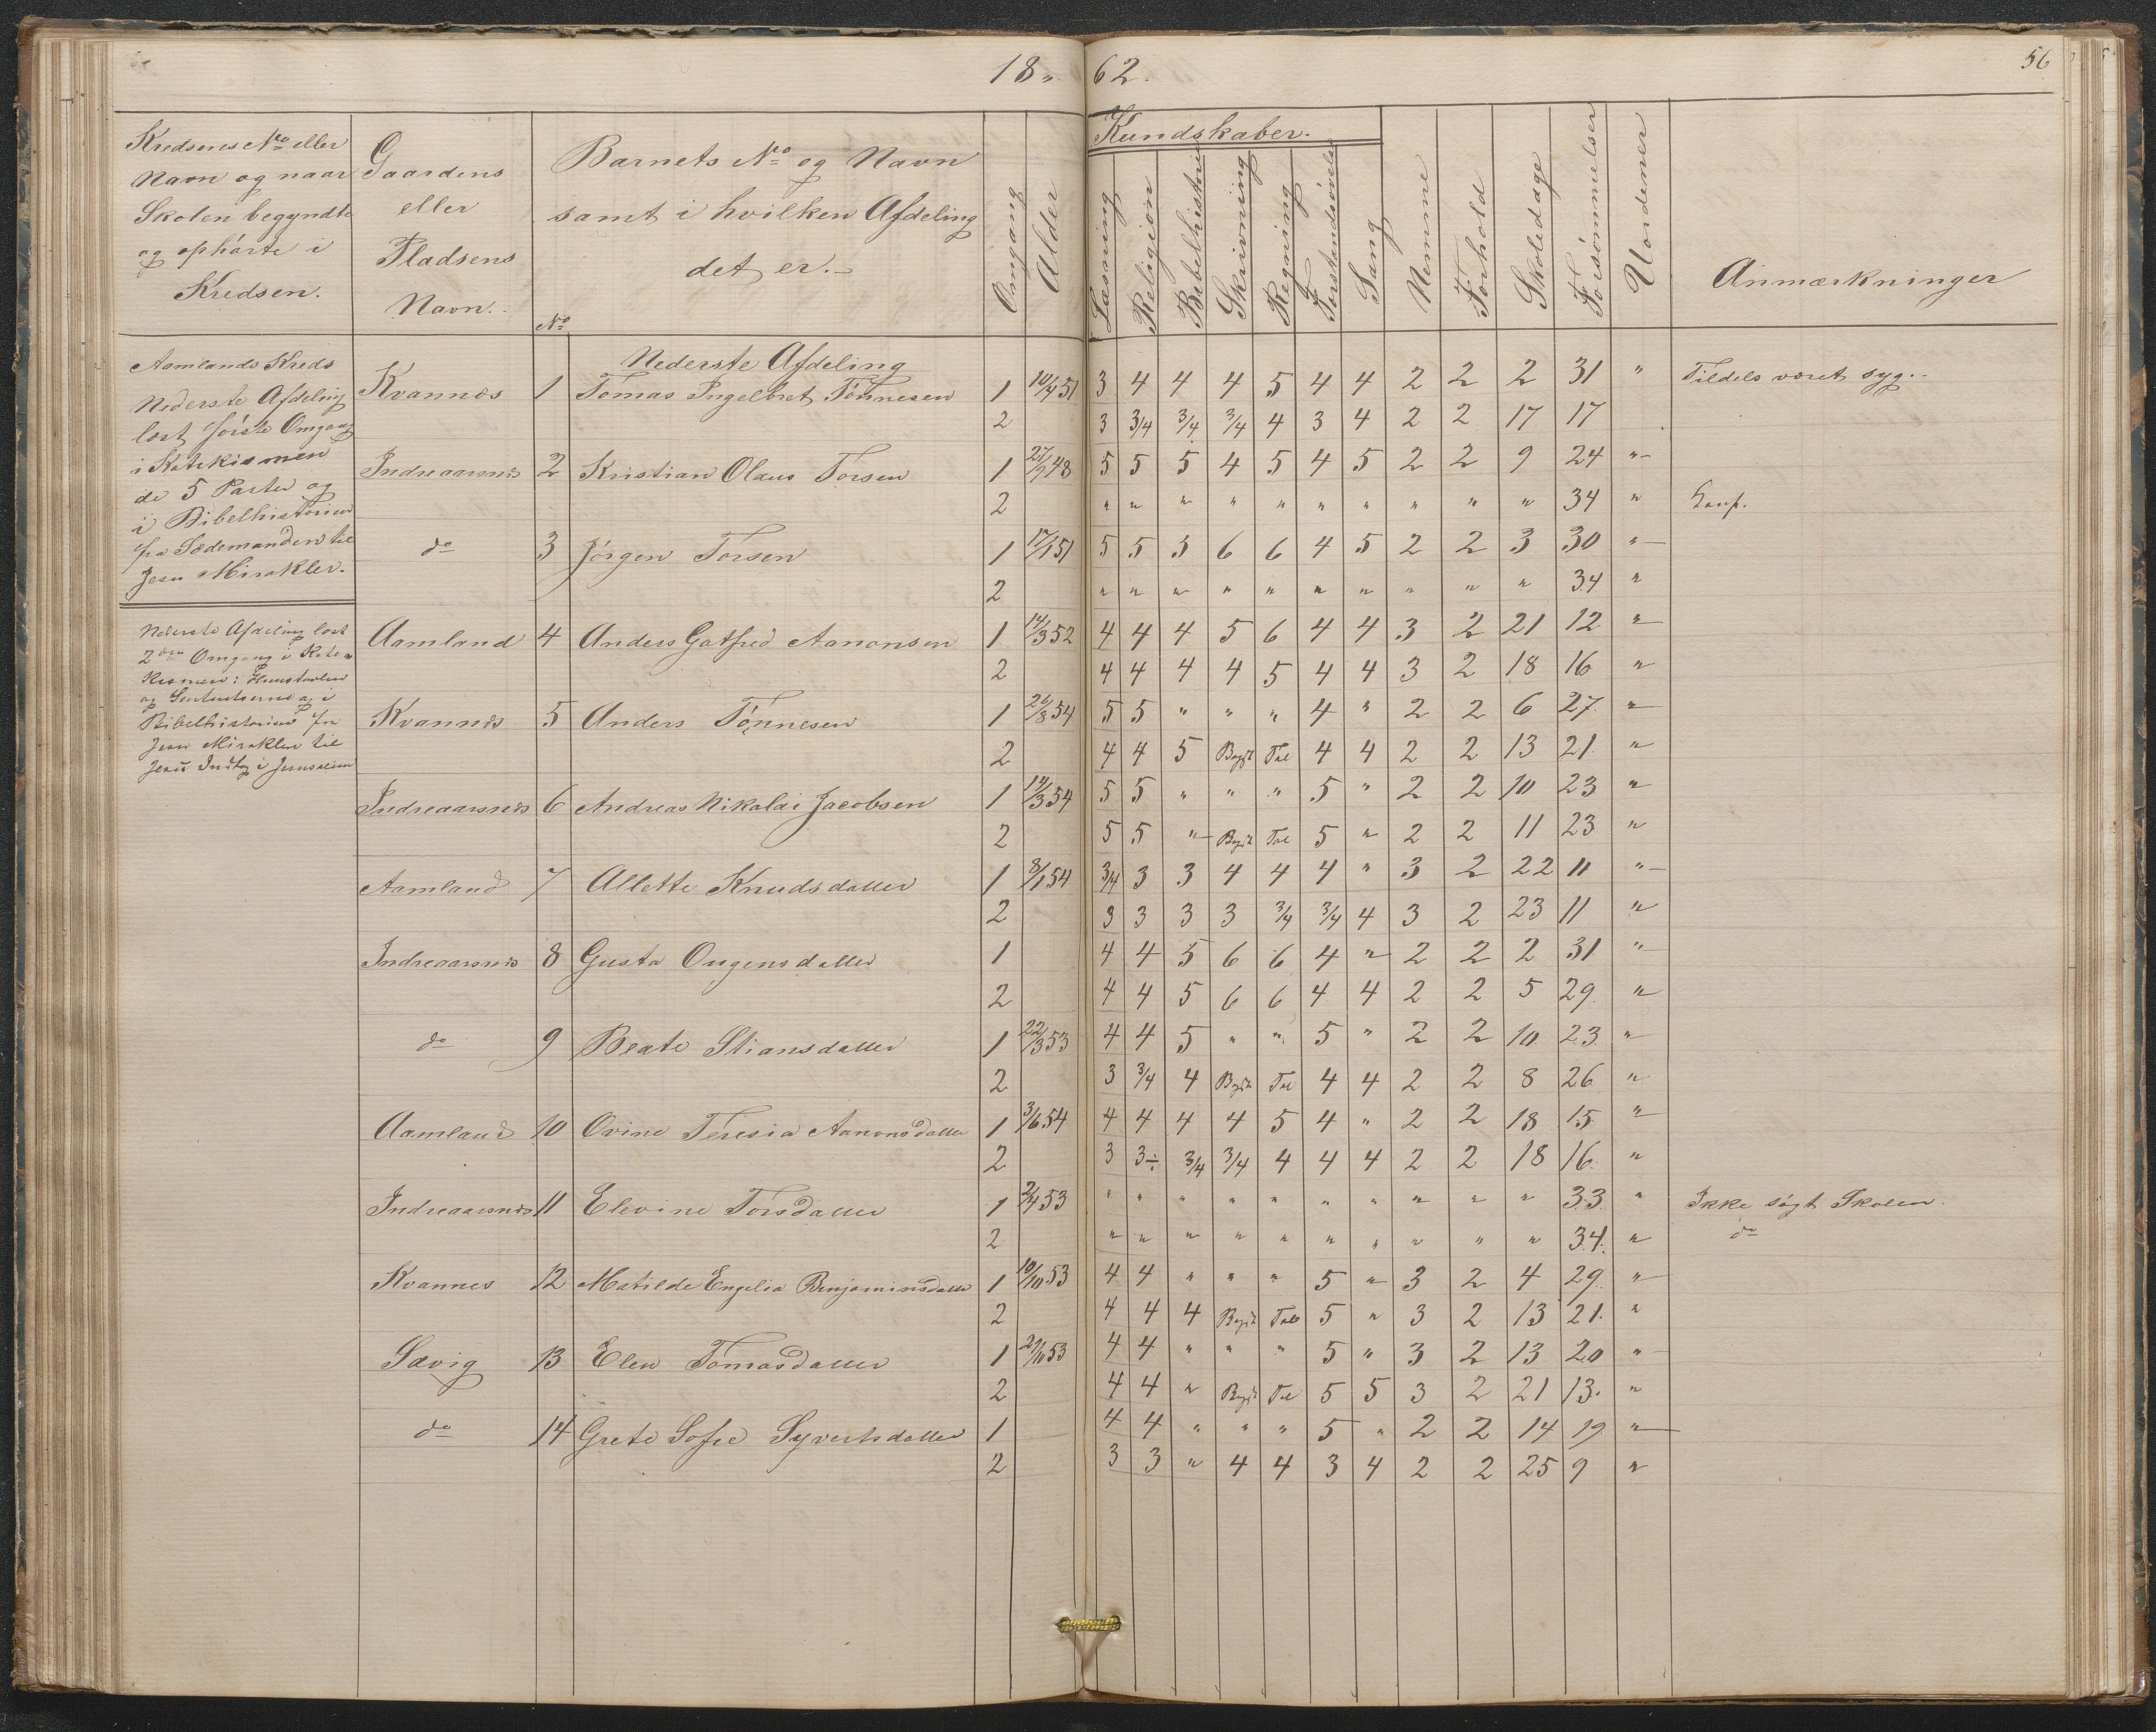 18 " 62.
56
Kredsens No eller Navn og naar Skolen begyndte og ophörte i Kredsen.
Gaardens eller Pladsens Navn.
No
Barnets No og Navn samt i hvilken Afdeling det er.
Omgang
Alder
Kundskaber.
Læsning
Religion
Bibelhistorie
Skrivning
Regning
Forstandsövelse
Sang
Nemme
Forhold
Skoledage
Forsömmelser
Uordener
Anmærkninger
Aamlands Kreds
Nederste Afdeling
læst förste Omgang
i Katekismen
de 5 Parter og
i Bibelhistorien
fra Sædemanden til
Jesu Mirakler.
Nederste Afdeling læst
2den Omgang i Kate=
kismen: Huustavlen
og og i
Bibelhistorien fra
Jesu Mirakler til
Jesu Indtog i Jerusalem
Nederste Afdeling
Kvannes 1 Tomas Ingelbret Tönnesen 1 10/4 51 3 4 4 4 5 4 4 2 2 2 31 " Tildels været syg.
2 3 3/4 3/4 3/4 4 3 4 2 2 17 17
Indreaarsnes 2 Kristian Olaus Torsen 1 27/9 48 5 5 5 4 5 4 5 2 2 9 24 "
2 " " " " " " " " " " 34 "
do 3 Jörgen Torsen 1 17/1 51 5 5 5 6 6 4 5 2 2 3 30 "
2 " " " " " " " " " " 34 "
Aamland 4 Anders Gotfred Aanonsen 1 14/3 52 4 4 4 5 6 4 4 3 2 21 12 "
2 4 4 4 4 5 4 4 3 2 18 16 "
Kvannes 5 Anders Tönnesen 1 26/8 54 5 5 " " " 4 " 2 2 6 27 "
2 4 4 5 Begyt Tal 4 4 2 2 13 21 "
Indreaarsnes 6 Andreas Nikolai Jacobsen 1 14/3 54 5 5 " " " 5 " 2 2 10 23 "
2 5 5 " Begyt Tal 5 " 2 2 11 23 "
Aamland 7 Allette Knudsdatter 1 8/1 54 3/4 3 3 4 4 4 " 3 2 22 11 "
2 3 3 3 3 3/4 3/4 4 3 2 23 11 "
Indreaarsnes 8 Gusta Ougensdatter 1 4 4 5 6 6 4 " 2 2 2 31 "
2 4 4 5 6 6 4 4 2 2 5 29 "
do 9 Beate Stiansdatter 1 22/3 53 4 4 5 " " 5 " 2 2 10 23 "
2 3 3/4 4 Begyt Tal 4 4 2 2 8 26 "
Aamland 10 Ovine Teresia Aanonsdatter 1 3/6 54 4 4 4 4 5 4 " 2 2 18 15 "
2 3 3÷ 3/4 3/4 4 4 4 2 2 18 16 "
Indreaarsnes 11 Elevine Torsdatter 1 2/4 53 " " " " " " " " " " 33 " Ikke sögt Skolen.
2 " " " " " " " " " " 34 " do
Kvannes 12 Matilde Engelia Benjaminsdatter 1 10/10 53 4 4 " " " 5 " 3 2 4 29 "
2 4 4 4 Begyt Tal 5 " 3 2 13 21 "
Sævig 13 Elen Tomasdatter 1 29/10 53 4 4 " " " 5 " 3 2 13 20 "
2 4 4 " Begyt Tal 5 5 3 2 21 13 "
do 14 Grete Sofie Syvertsdatter 1 4 4 " " " 5 " 2 2 14 19 "
2 3 3 " 4 4 3 4 2 2 25 9 "